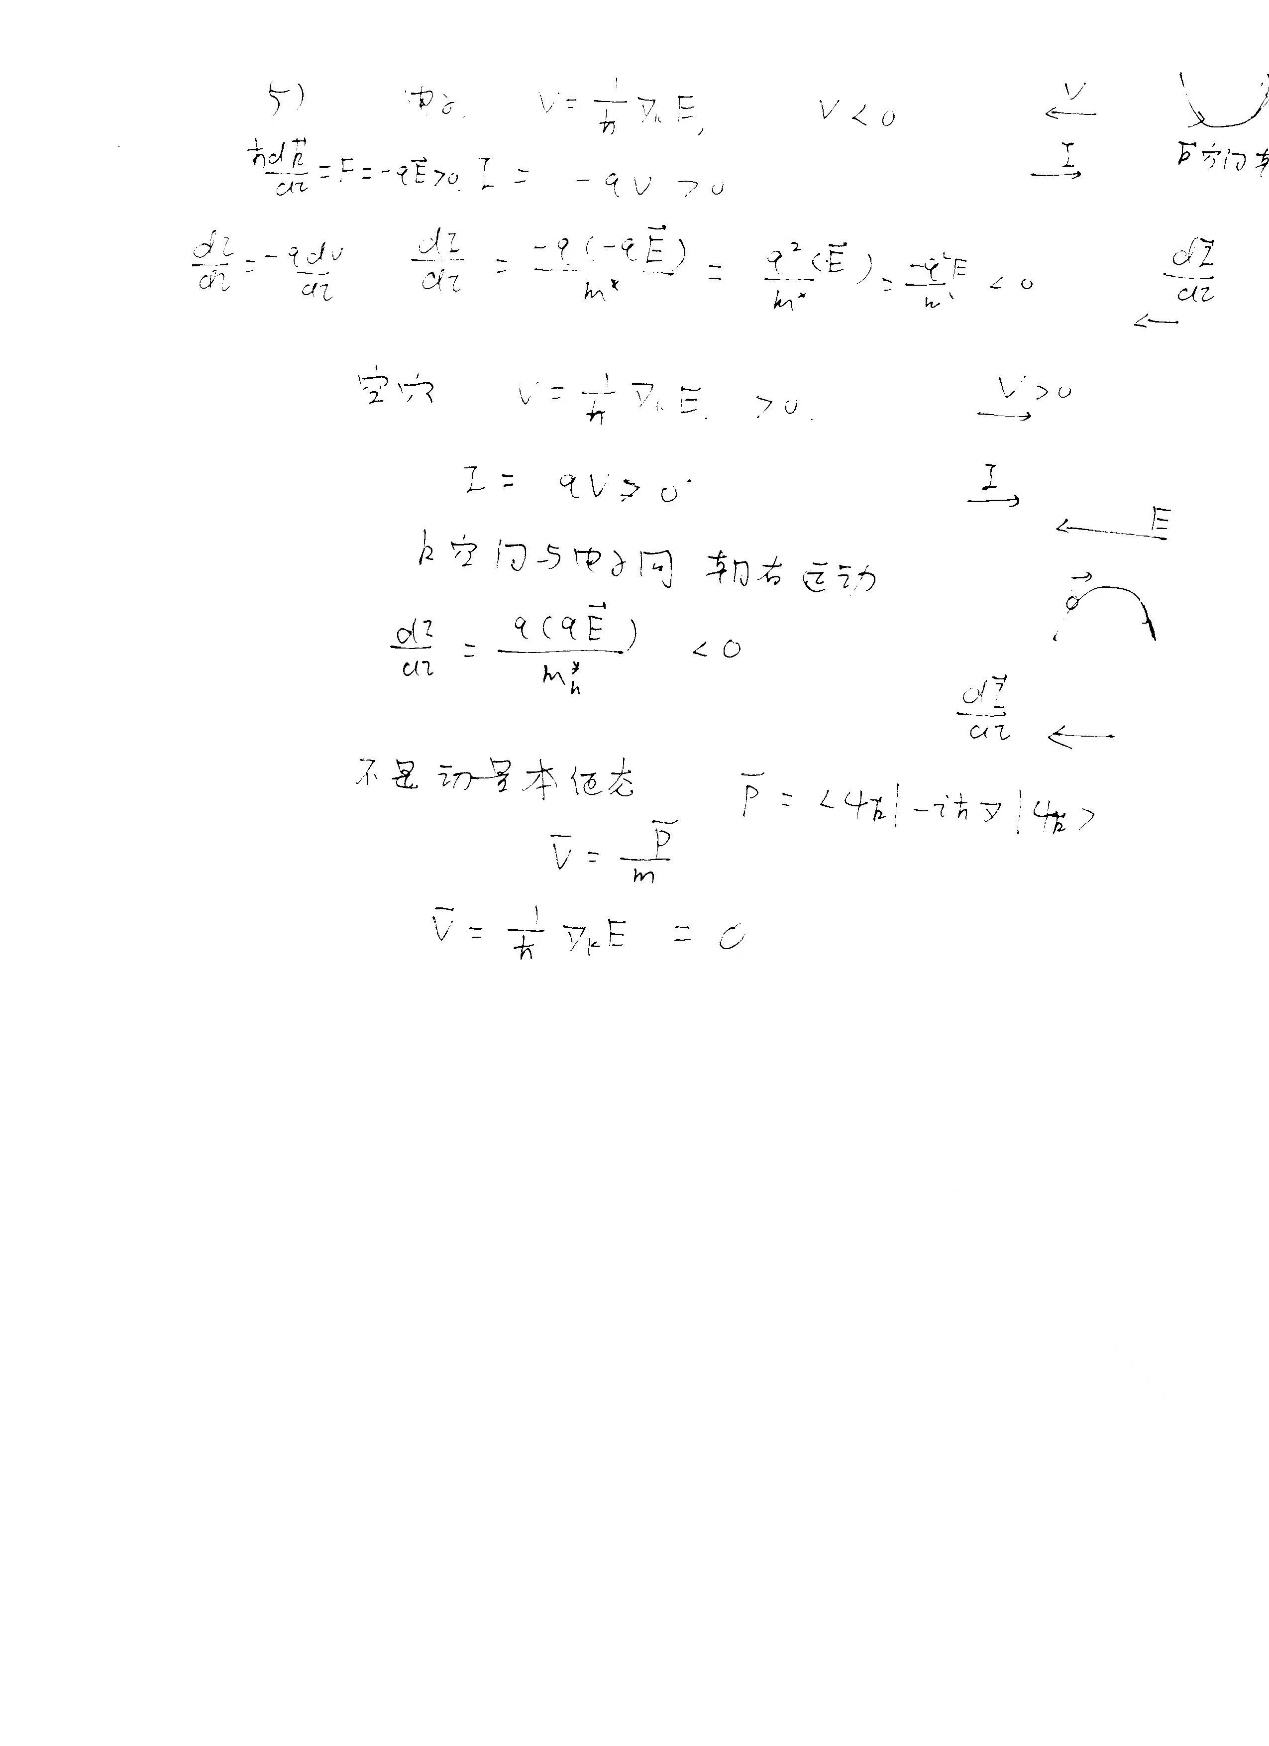 5) 电子 V = 1/ħ ∇ₖE, V < 0 V
ħdk⃗/dt = F = -qE⃗ > 0 I = -qV > 0 I k空间
dI/dt = -q dv/dt dI/dt = -q(-qE⃗)/m* = q²(E⃗)/m* = -q²E/m* < 0 dI⃗/dt
空穴 V = 1/ħ ∇ₖE. > 0. V > 0
I = qV > 0 I
E
k空间与电子同 朝右运动
dI/dt = q(qE⃗)/m*ₕ < 0
dI⃗/dt
不是动量本征态 P̄ = <ψₖ|-iħ∇|ψₖ>
V̄ = P̄/m
V̄ = 1/ħ ∇ₖE = 0